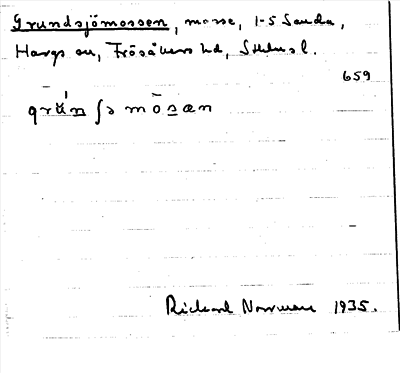 Grundsjömossen, mosse, 1-5 Sanda,
Hargs sn, Frösåkers hd, Sthlms l.
659
Richard Norrman 1935.